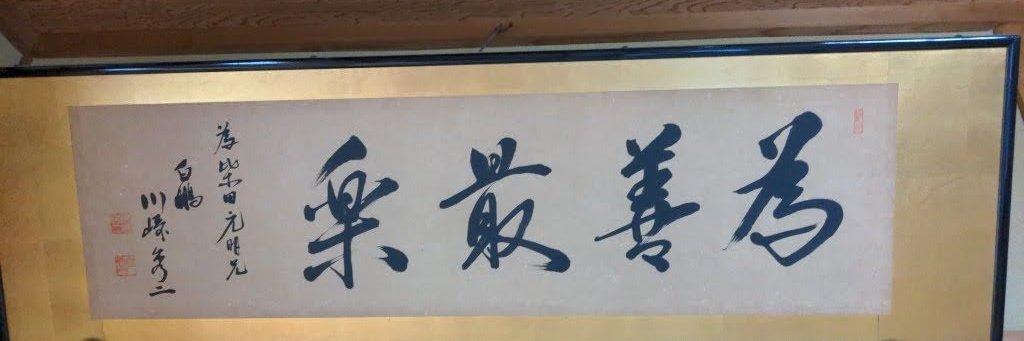 為善最楽
為柴田元明兄
白鵬
川崎秀二